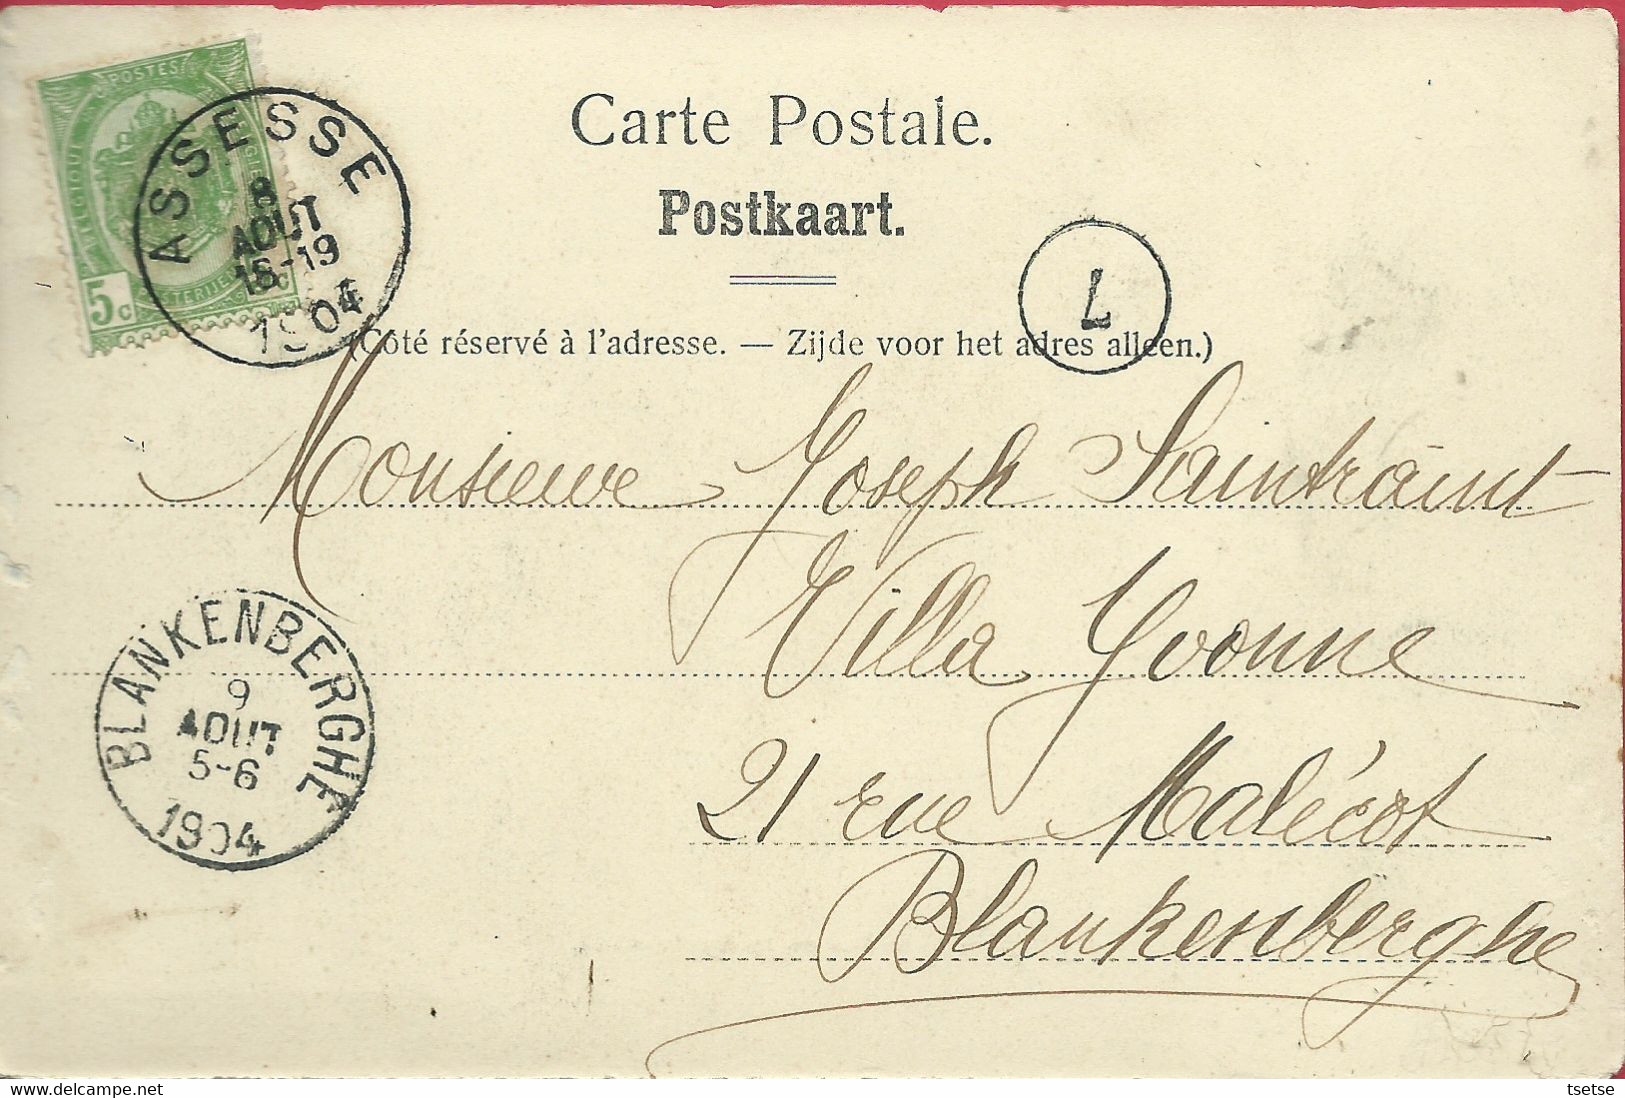 POSTES
BELGIQUE
5c
ASSESSE
8
AOUT
18-19
1904
Carte Postale.
Postkaart.
7
(Côté réservé à l'adresse. — Zijde voor het adres alleen.)
Monsieur Joseph Saintraint
Villa Yvonne
21 rue Malécot
Blankenberghe
BLANKENBERGHE
9
AOUT
5-6
1904
delcampe.net
tsetse